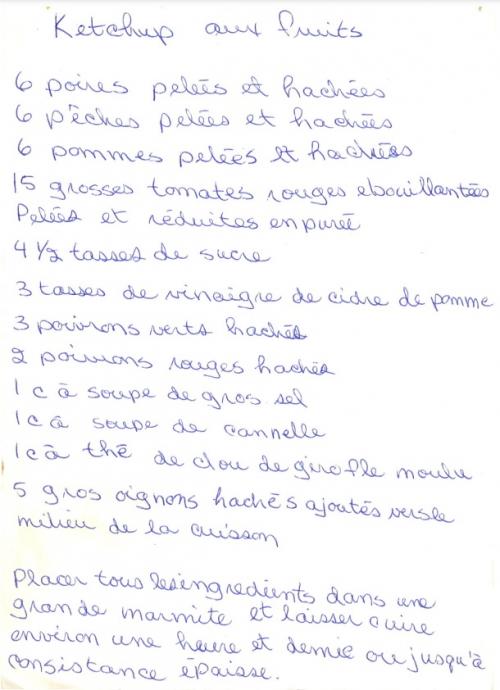 Ketchup aux fruits
6 poires pelées et hachées
6 pêches pelées et hachées
6 pommes pelées et hachées
15 grosses tomates rouges ebouillantées
Pelées et réduites en purée
4 1/2 tasses de sucre
3 tasses de vinaigre de cidre de pomme
3 poivrons verts hachés
2 poivrons rouges hachés
1 c à soupe de gros sel
1 c à soupe de cannelle
1 c à thé de clou de girofle moulu
5 gros oignons hachés ajoutés vers le
milieu de la cuisson
Placer tous les ingredients dans une
grande marmite et laisser cuire
environ une heure et demie ou jusqu'à
consistance épaisse.